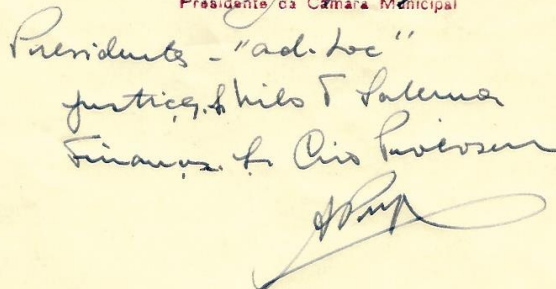 Presidente da Câmara Municipal
Presidente - "ad-hoc"
Justiça. Sr Nilo T Salerno
Finanças. Sr Ciro